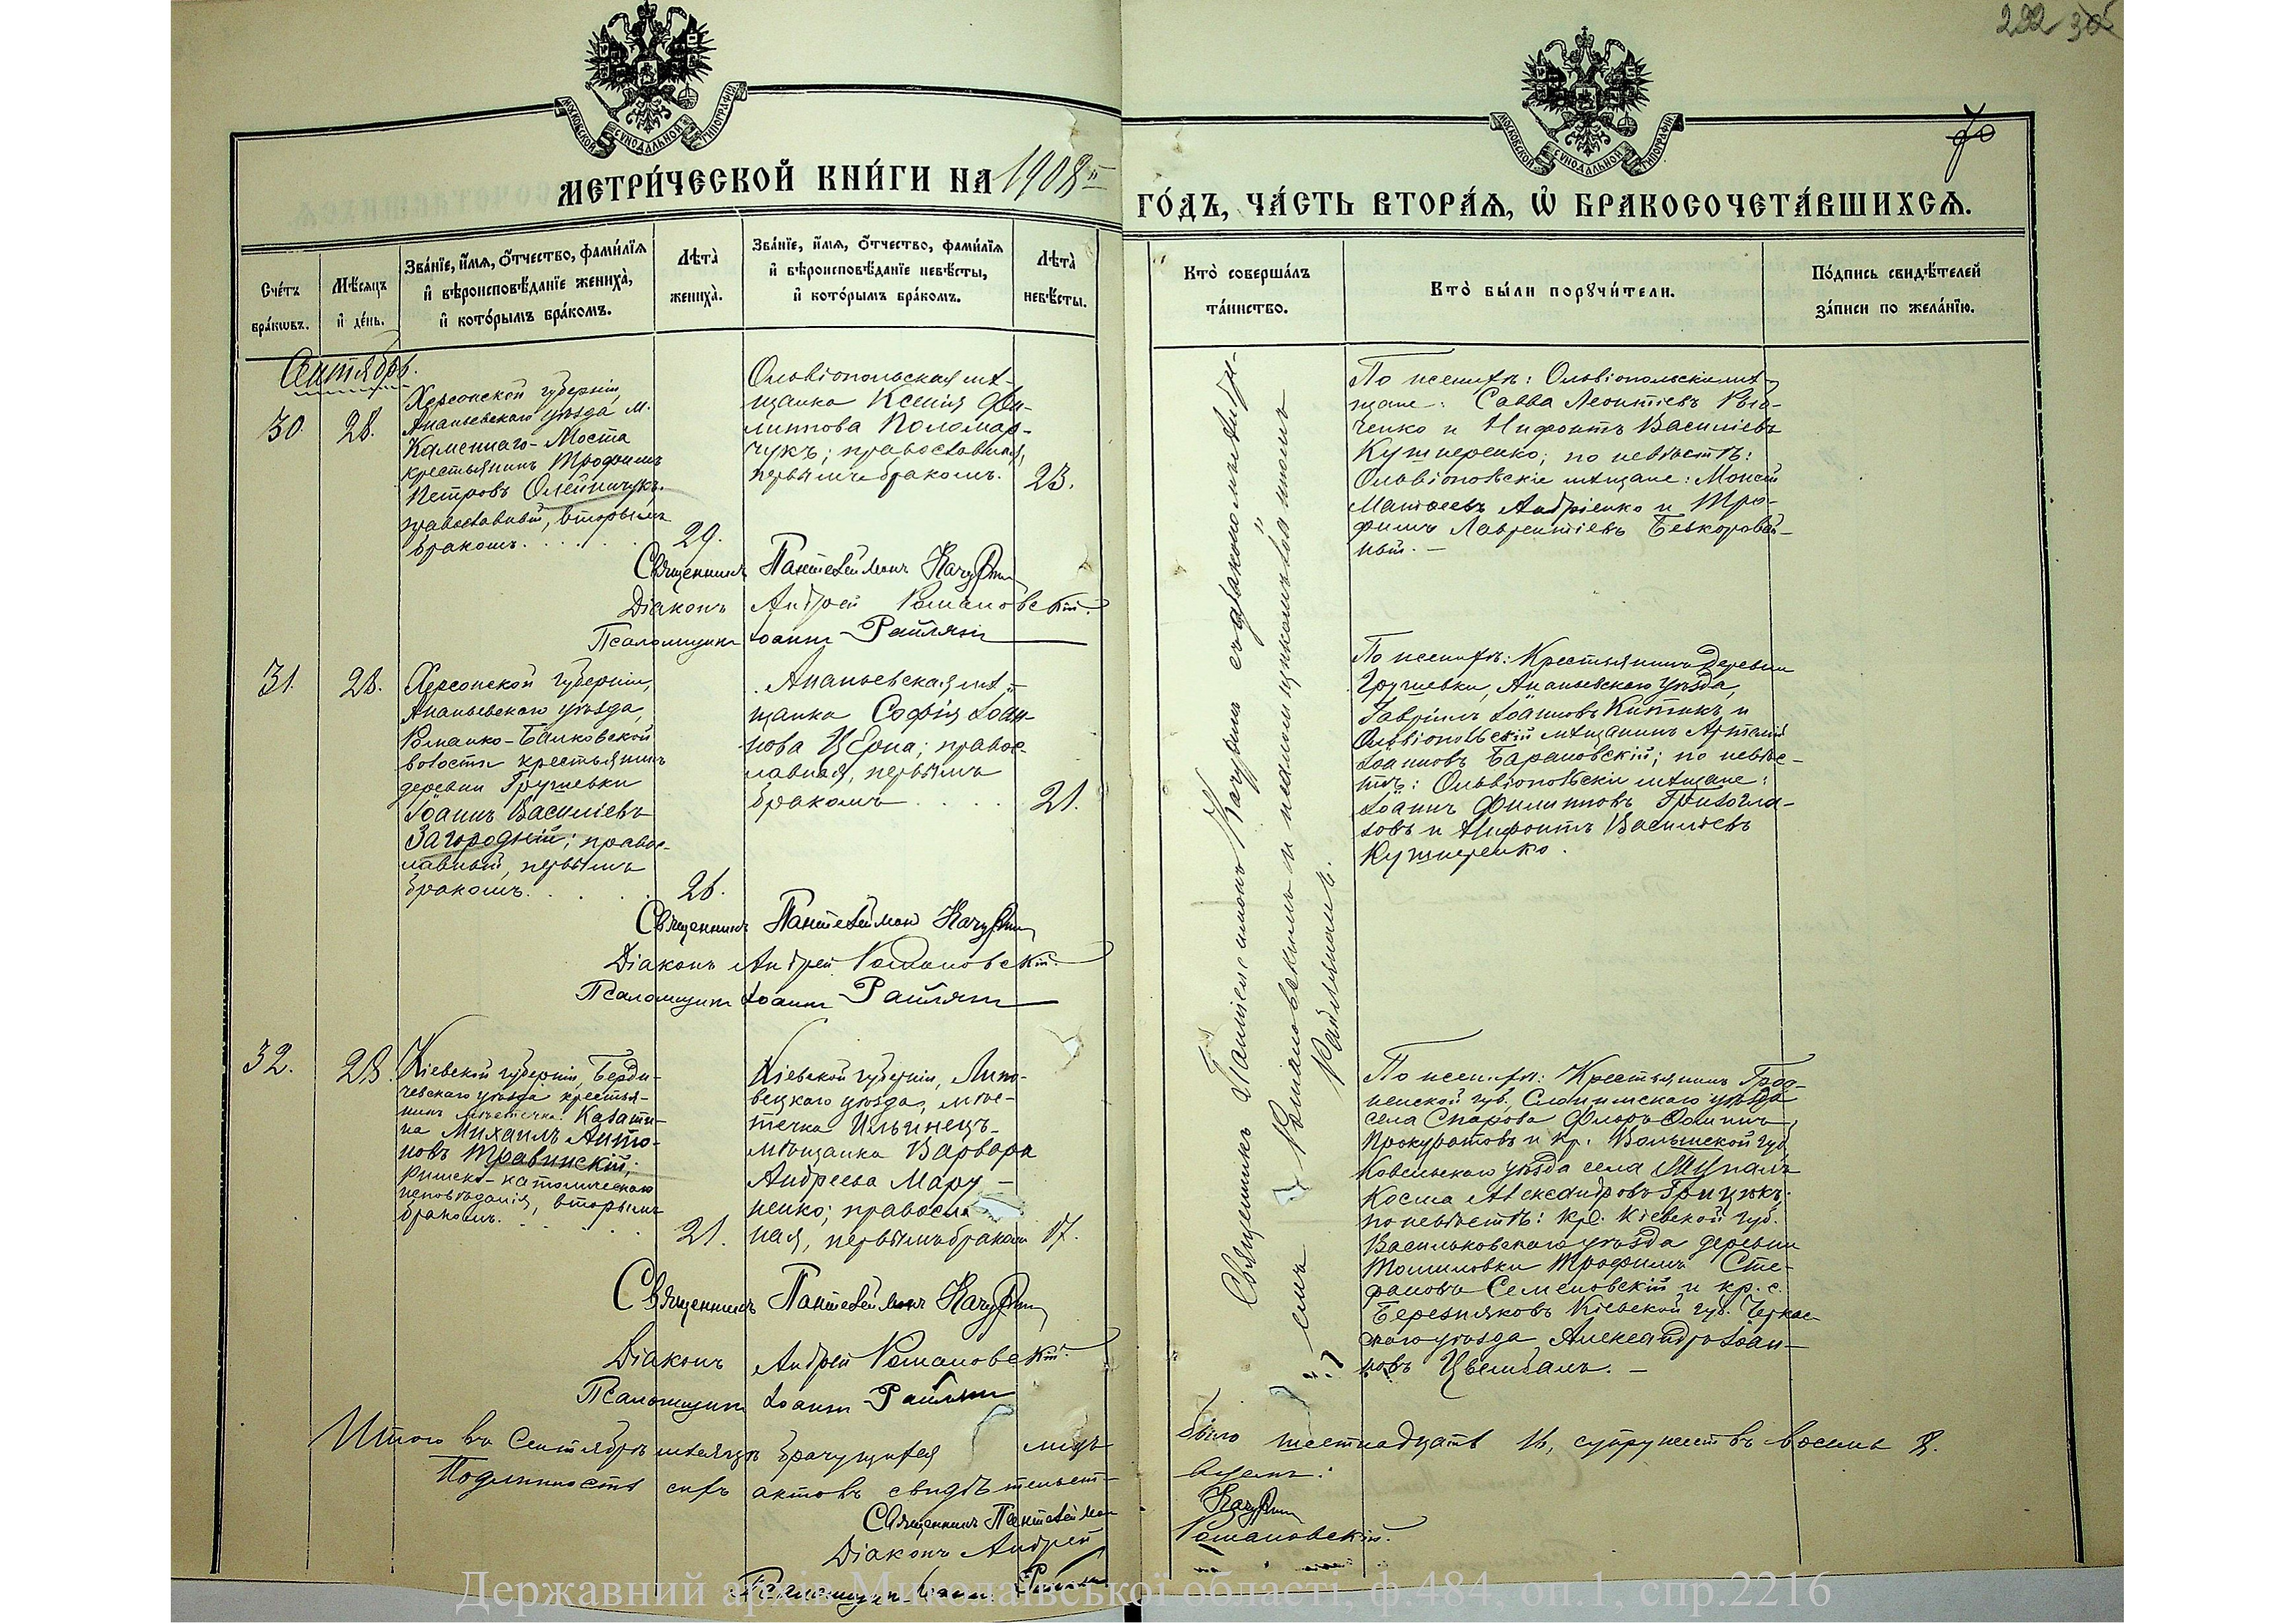 222
МОСКОВСКОЙ СѴНОДАЛЬНОЙ ТИПОГРАФІИ
МОСКОВСКОЙ СѴНОДАЛЬНОЙ ТИПОГРАФІИ
70
МЕТРИ́ЧЕСКОЙ КНИ́ГИ НА 1908й
ГО́ДЪ, ЧА́СТЬ ВТОРА́Ѧ, Ѡ҆ БРАКОСОЧЕТА́ВШИХСѦ.
Сче́тъ бра́кѡвъ.
Мѣ́сяцъ и҆ де́нь.
Зва́нїе, и҆́мѧ, ѻ҆́тчество, фами́лїѧ
и҆ вѣроисповѣ́данїе жениха̀,
и҆ кото́рымъ бра́комъ.
Лѣта̀ жениха̀.
Зва́нїе, и҆́мѧ, ѻ҆́тчество, фами́лїѧ
и҆ вѣроисповѣ́данїе невѣ́сты,
и҆ кото́рымъ бра́комъ.
Лѣта̀ невѣ́сты.
Кто̀ соверша́лъ та́инство.
Кто̀ бы́ли порꙋчи́тели.
По́дпись свидѣ́телей за́писи по жела́нїю.
Сентябрь.
30.
28.
Херсонской губерніи,
Ананьевскаго уѣзда м.
Каменнаго-Моста
крестьянинъ Трофимъ
Петровъ Олейничукъ.
православный, вторымъ
бракомъ.
29.
Ольвіопольская мѣ-
щанка Ксенія Фи-
липпова Поломар-
чукъ; православная,
первымъ бракомъ.
23.
По женихѣ: Ольвіопольскіе мѣ-
щане: Савва Леонтіевъ
и Нифонтъ Василіевъ
Кушнеренко; по невѣстѣ:
Ольвіопольскіе мѣщане: Моисей
Матѳеевъ Андріенко и Тро-
фимъ Лаврентіевъ Безкоровай-
ный.
Священникъ Пантелеймонъ
Діаконъ Андрей Романовскій.
Псаломщикъ Іоаннъ Райлянъ
Священникъ Пантелеимонъ
Романовскимъ и псаломщикомъ Іоанномъ
Райляномъ.
31.
28.
Херсонской губерніи,
Ананьевскаго уѣзда,
Романко-Балковской
волости крестьянинъ
деревни Грушевки
Іоаннъ Василіевъ
Загородній; право-
славный, первымъ
бракомъ.
26.
Ананьевская мѣ-
щанка Софія Іоан-
нова Церна; право-
славная, первымъ
бракомъ
21.
По женихѣ: Крестьянинъ деревни
Грушевки, Ананьевскаго уѣзда,
Гавріилъ Іоанновъ и
Ольвіопольскій мѣщанинъ Артемій
Іоанновъ Барановскій; по невѣс-
тѣ: Ольвіопольскіе мѣщане:
Іоаннъ Филипповъ
и Нифонтъ Василіевъ
Кушнеренко.
Священникъ Пантелеймонъ
Діаконъ Андрей Романовскій.
Псаломщикъ Іоаннъ Райлянъ
32.
28.
Кіевской губерніи, Берди-
чевскаго уѣзда крестья-
нинъ мѣстечка Казати-
на Михаилъ Анто-
новъ Травинскій;
Римско-католическаго
исповѣданія, вторымъ
бракомъ.
21.
Кіевской губерніи, Липо-
вецкаго уѣзда, мѣс-
течка Ильинецъ
мѣщанка Варвара
Андреева Мару-
ненко; правосла
ная, первымъ бракомъ
17.
По женихѣ: Крестьянинъ Грод-
ненской губ. Слонимскаго уѣзда
села Спорова Флоръ
и кр. Волынской губ.
Ковельскаго уѣзда села
Косма Александровъ Грицюкъ;
по невѣстѣ: кр. Кіевской губ.
Васильковскаго уѣзда деревни
Томиловки Трофимъ Сте-
фановъ Семеновскій и кр. с.
Березняковъ Кіевской губ. Черкас-
скаго уѣзда Александръ Іоан-
новъ
Священникъ Пантелеймонъ
Діаконъ Андрей Романовскій.
Псаломщикъ Іоаннъ Райлянъ
Итого въ Сентябрѣ мѣсяцѣ брачущихся лицъ было шестнадцать 16, супружествъ восемь 8.
Подлинность сихъ актовъ свидѣтельст-
вуемъ:
Священникъ Пантелеймонъ
Діаконъ Андрей Романовскій.
Псаломщикъ Іоаннъ
Державний архів Миколаївської області, ф.484, оп.1, спр.2216